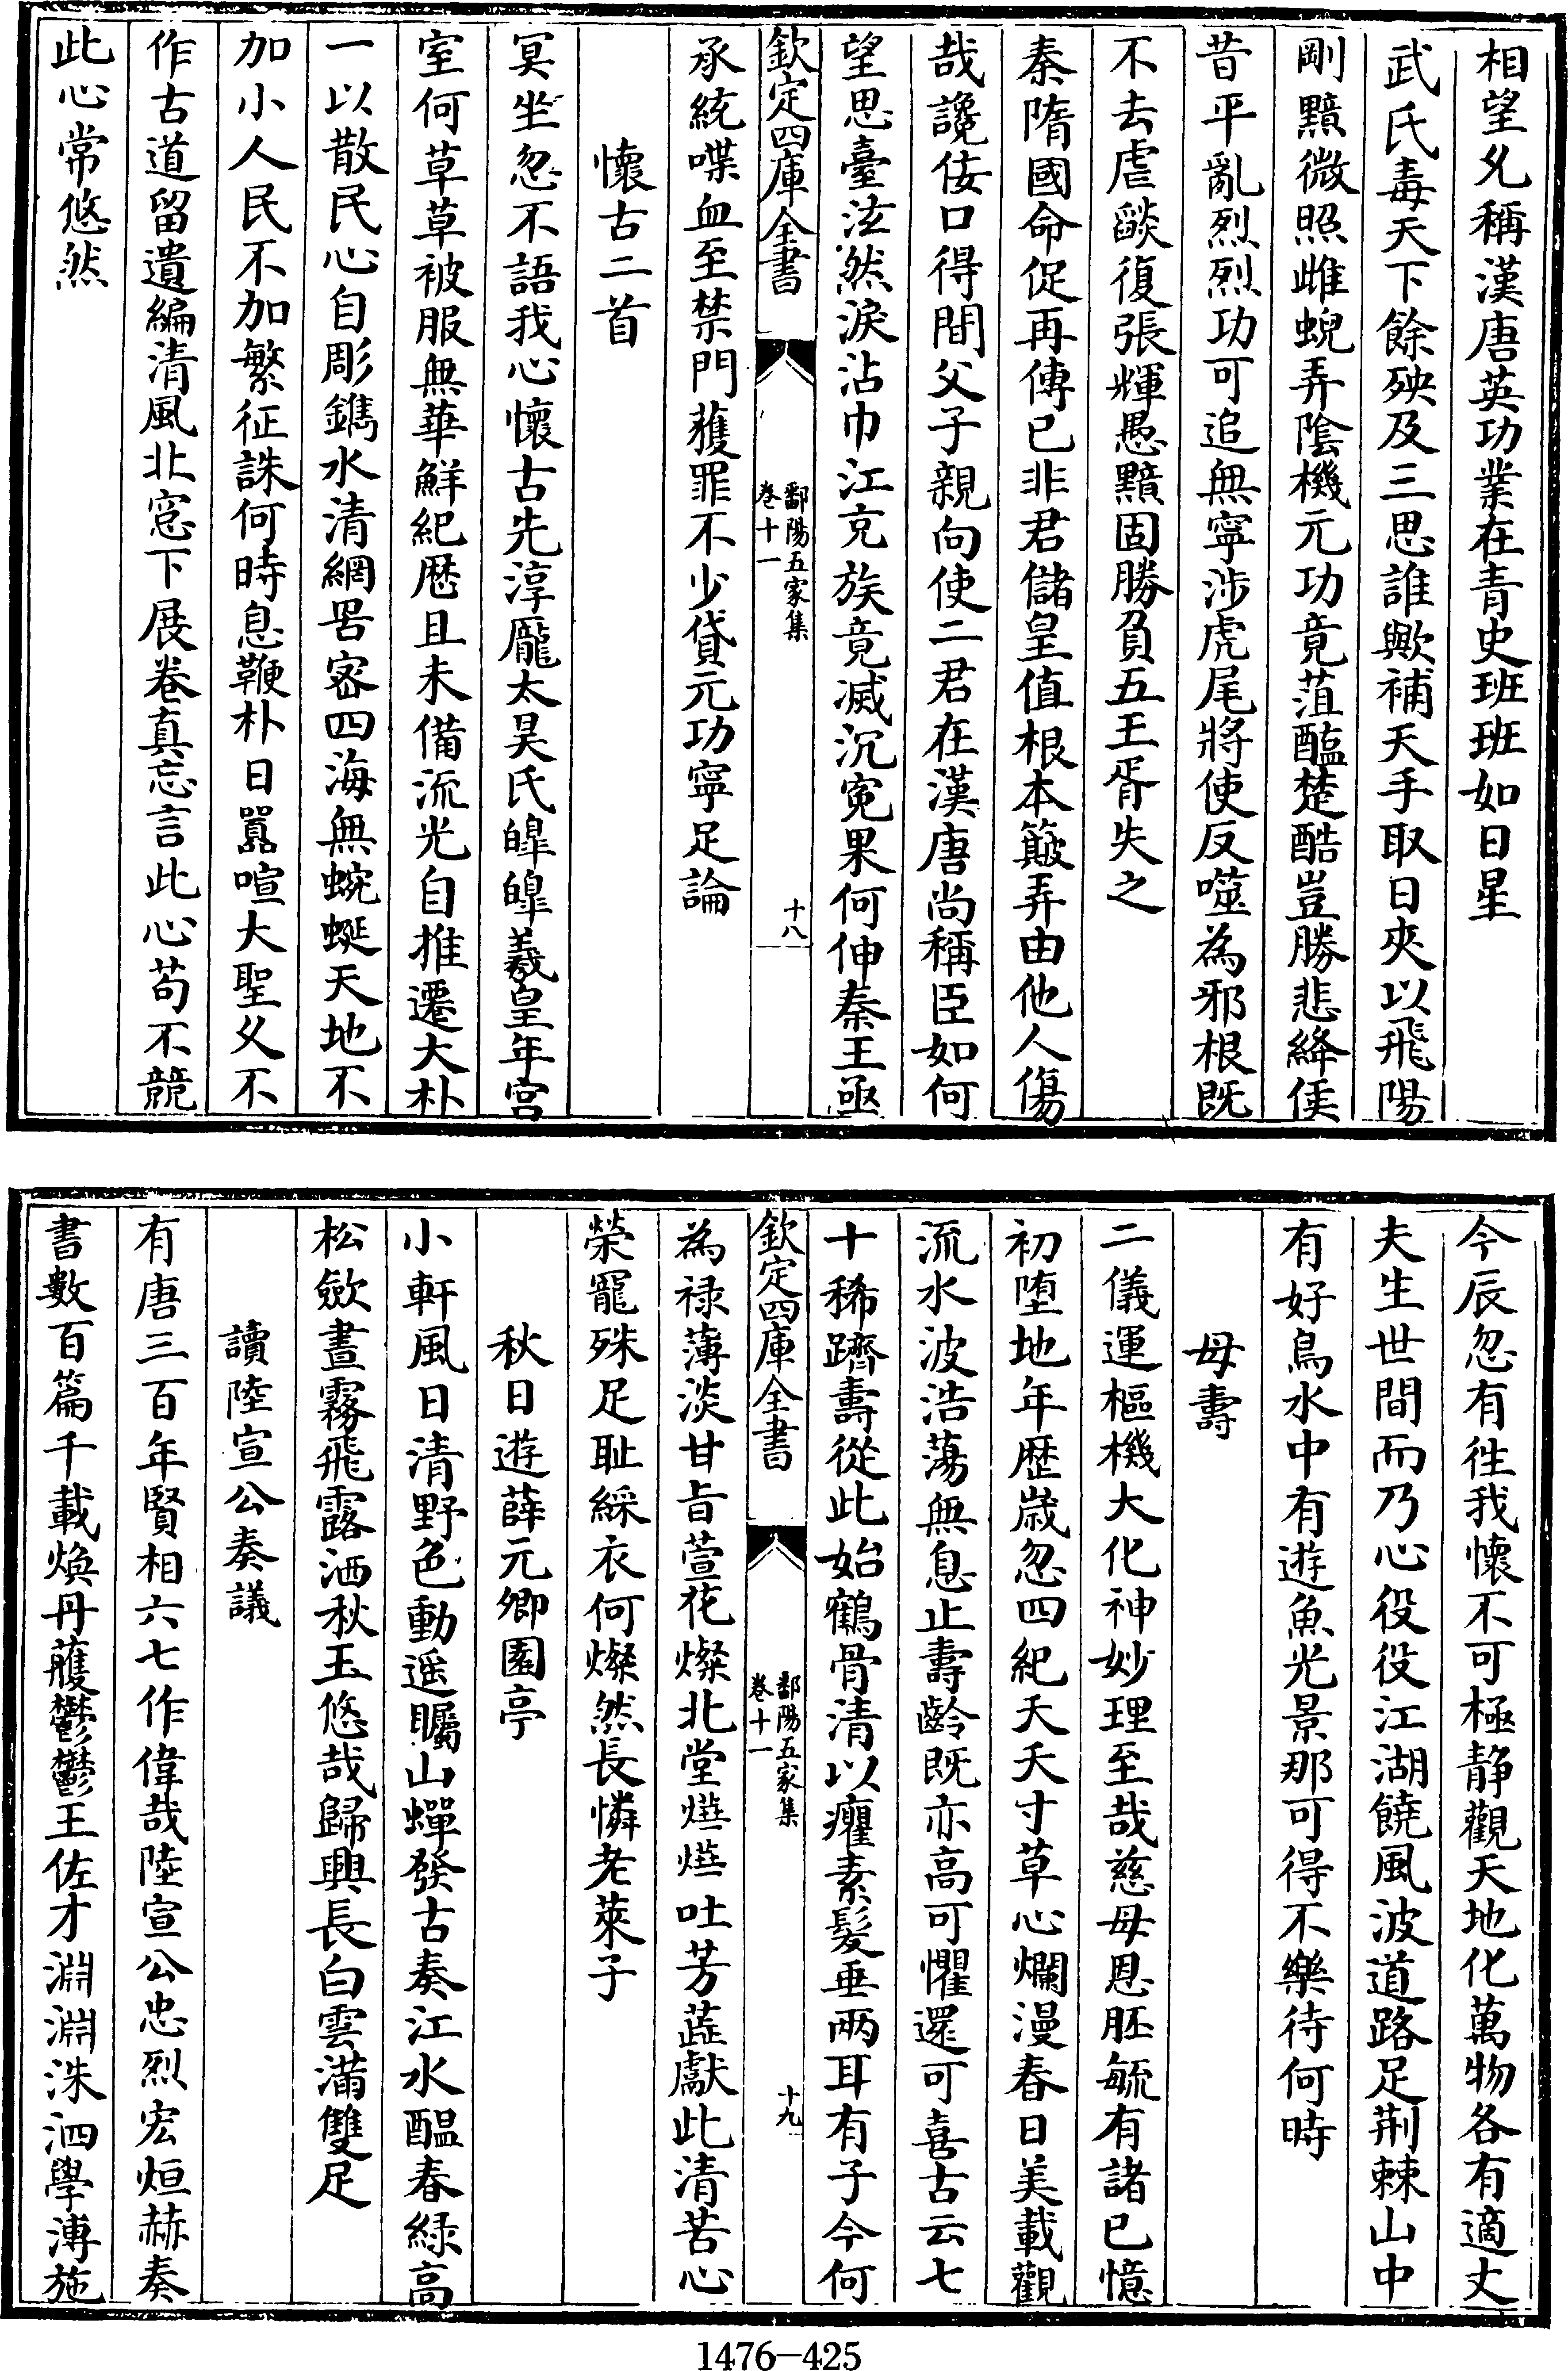 相望久稱漢唐英功業在青史班班如日星
武氏毒天下餘殃及三思誰歟補天手取日夾以飛陽
剛黯微照雌蜺弄陰機元功竟菹醢楚酷豈勝悲絳侯
昔平亂烈烈功可追無寧涉虎尾將使反噬為邪根既
不去虐燄復張輝愚黯固勝負五王胥失之
秦隋國命促再傳已非君儲皇值根本簸弄由他人傷
哉讒佞口得間父子親向使二君在漢唐尚稱臣如何
望思臺泫然淚沾巾江充族竟滅沉寃果何伸秦王亟
欽定四庫全書
鄱陽五家集
卷十一
十八
承統喋血至禁門獲罪不少貸元功寧足論
懷古二首
冥坐忽不語我心懷古先淳龎太昊氏皥皥羲皇年宫
室何草草被服無華鮮紀厯且未備流光自推遷大朴
一以散民心自彫鐫水清網罟密四海無蜿蜒天地不
加小人民不加繁征誅何時息鞭朴日嚣喧大聖久不
作古道留遺編清風北窓下展卷真忘言此心茍不競
此心常悠然
今辰忽有徃我懷不可極静觀天地化萬物各有適丈
夫生世間而乃心役役江湖饒風波道路足荆棘山中
有好鳥水中有遊魚光景那可得不樂待何時
母壽
二儀運樞機大化神妙理至哉慈母恩胚毓有諸已憶
初堕地年歴歲忽四紀夭夭寸草心爛漫春日美載觀
流水波浩蕩無息止壽齡既亦高可懼還可喜古云七
十稀躋壽從此始鶴骨清以癯素髮垂兩耳有子今何
欽定四庫全書
鄱陽五家集
卷十一
十九
為禄薄淡甘旨萱花燦北堂燁燁吐芳蕋獻此清苦心
榮寵殊足耻綵衣何燦然長憐老萊子
秋日遊薛元卿園亭
小軒風日清野色動遥矚山蟬發古奏江水醖春綠高
松歛晝霧飛露洒秋玉悠哉歸興長白雲滿雙足
讀陸宣公奏議
有唐三百年賢相六七作偉哉陸宣公忠烈宏烜赫奏
書數百篇千載煥丹雘鬱鬱王佐才淵淵洙泗學溥施
1476-425